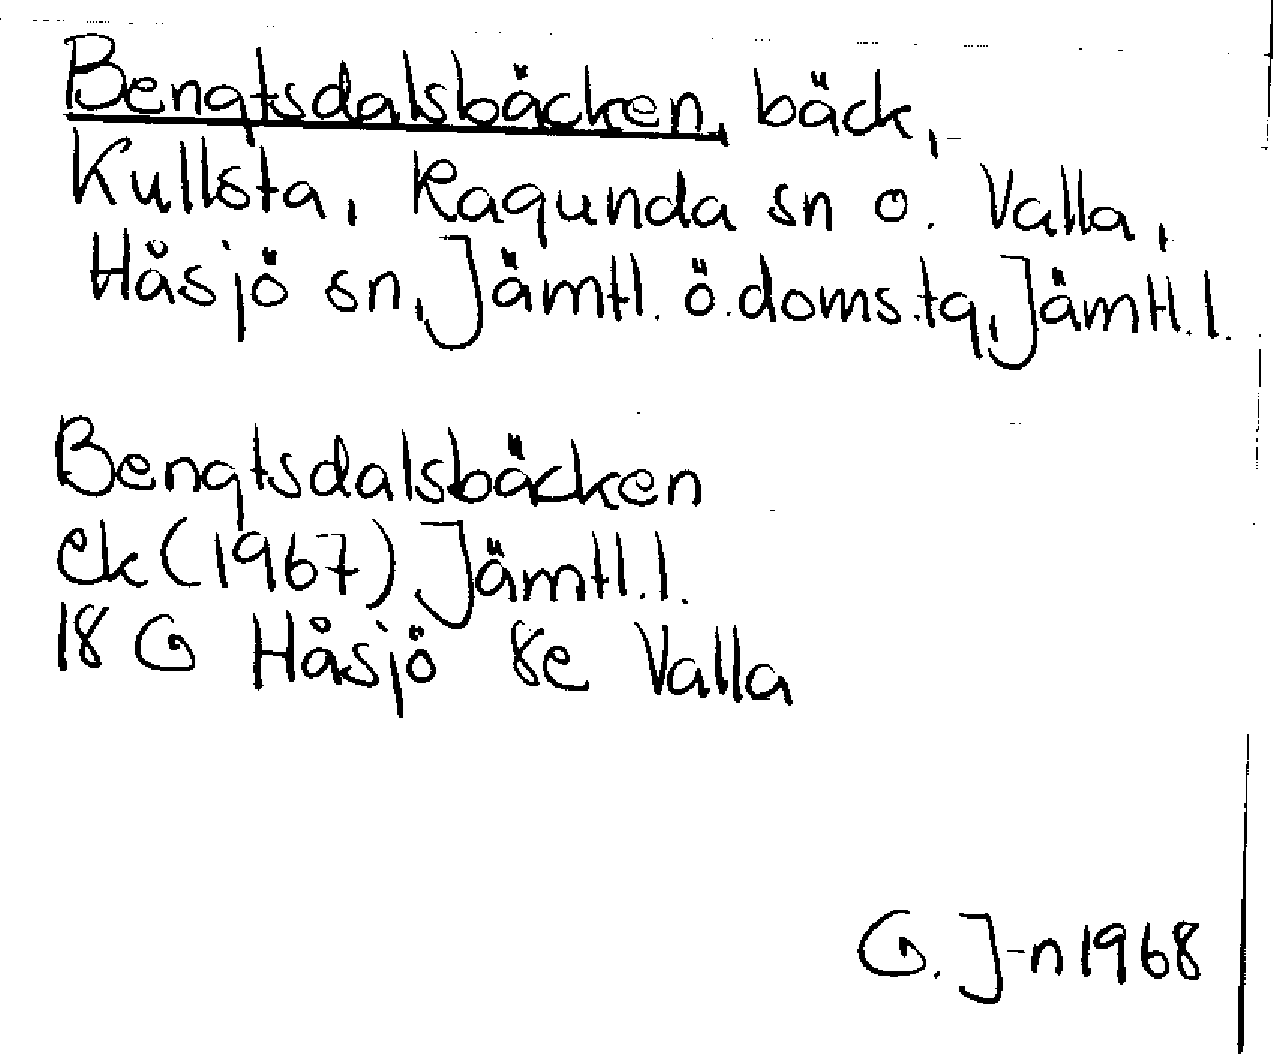 Bengtsdalsbäcken, bäck,
Kullsta, Ragunda sn o. Valla,
Håsjö sn, Jämtl. ö. doms. tg, Jämtl. l.
Bengtsdalsbäcken
ek (1967) Jämtl. l.
18 G Håsjö 8e Valla
G. J-n 1968